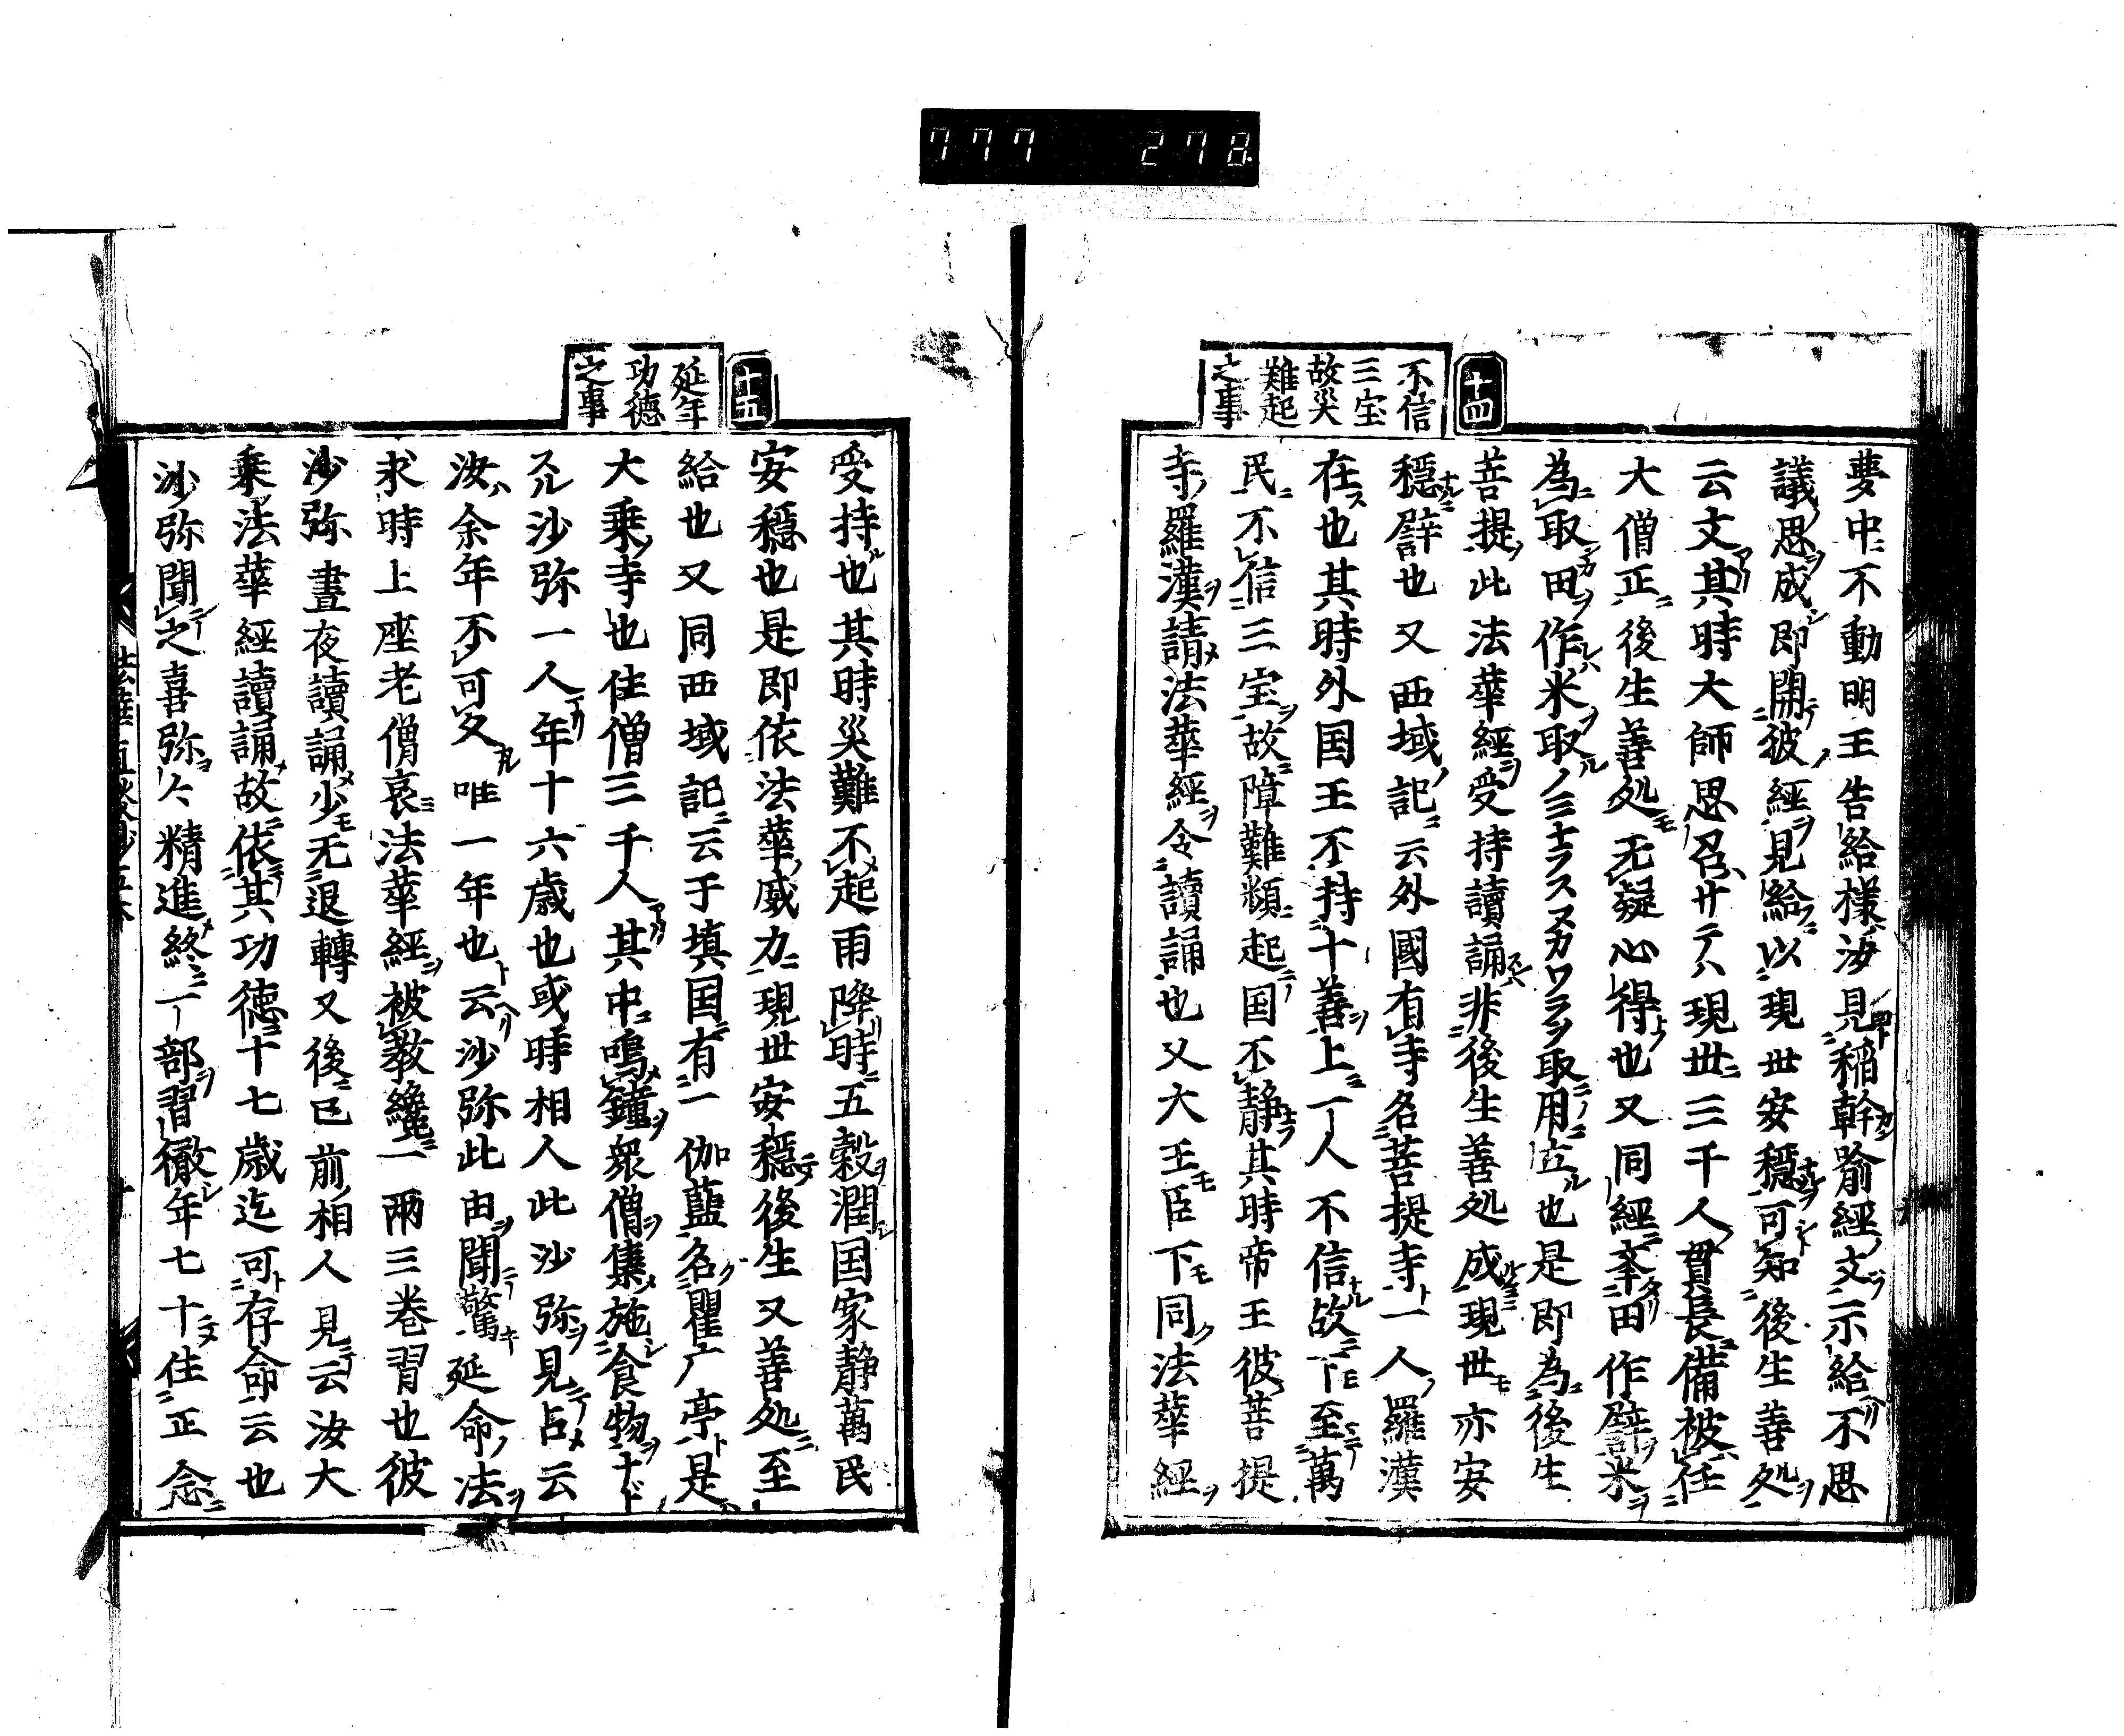 777 278
十四
不信
三宝
故災
難起
之事
夢中不動明王告給様汝見稲幹喩経文示給不思
議思成即開彼經見給以現世安穏可知後生善処
云文其時大師思召サテハ現世三千人貫長備被任
大僧正後生善処无疑心得也又同經奉田作辟米
為取田作米取ノミナラスヌカワラヲ取用立也是即為後生
菩提此法華經受持讀誦非後生善処成現世亦安
穏辟也又西域記云外國有寺名菩提寺一人羅漢
在也其時外国王不持十善上一人不信故下至萬
民不信三宝故障難頻起国不静其時帝王彼菩提
寺羅漢請法華經令讀誦也又大王臣下同法華經
十五
延年
功徳
之事
受持也其時災難不起雨降時五穀潤国家静萬民
安穏也是即依法華威力現世安穏後生又善処至
給也又同西域記云于填国有一伽藍名瞿广帝是
大乗寺也住僧三千人其中鳴鐘衆僧集施食物十ド
スル沙弥一人年十六歳也或時相人此沙弥見占云
汝余年不可久唯一年也云沙弥此由聞驚延命法
求時上座老僧哀法華經被教纔一兩三巻習也彼
沙弥晝夜讀誦少无退轉又後已前相人見云汝大
乗法華經讀誦故依其功徳十七歳迄可存命云也
沙弥聞之喜弥々精進終一部習徹年七十住正念